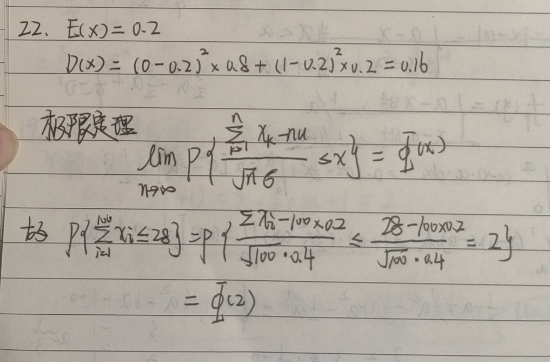 22. E(x)=0.2
D(x)=(0-0.2)²×0.8+(1-0.2)²×0.2=0.16
极限定理
lim n→∞ P{ (∑ k=1 n x_k-nu)/(√n σ) ≤x}=Φ(x)
故 P{∑ i=1 100 x_i≤28}=P{ (∑x_i-100×0.2)/(√100·0.4) ≤ (28-100×0.2)/(√100·0.4) =2}
=Φ(2)